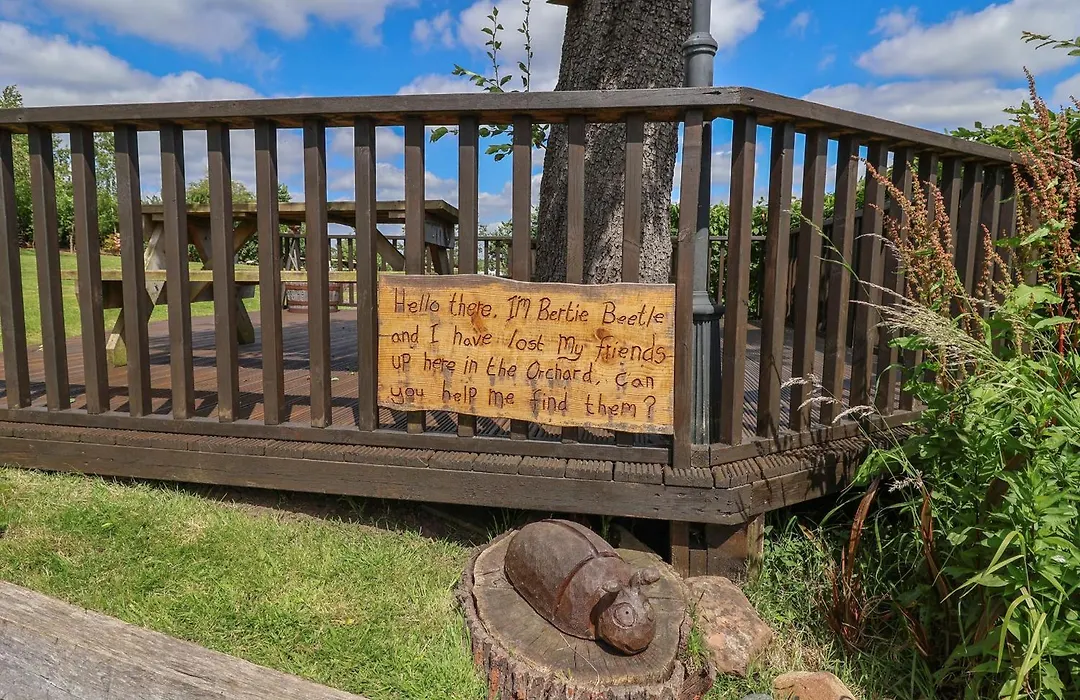 Hello there. I'M Bertie Beetle
and I have lost My friends
up here in the Orchard, can
you help me find them?